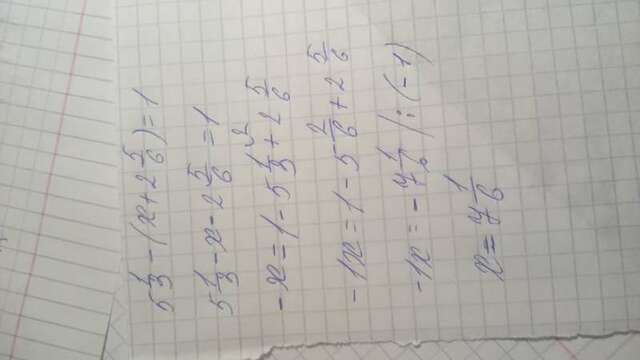 5 1/3 - (x + 2 5/6) = 1
5 1/3 - x - 2 5/6 = 1
-x = 1 - 5 1/3 + 2 5/6 2
-1x = 1 - 5 2/6 + 2 5/6
-1x = -7 1/6 /:(-1)
x = 7 1/6